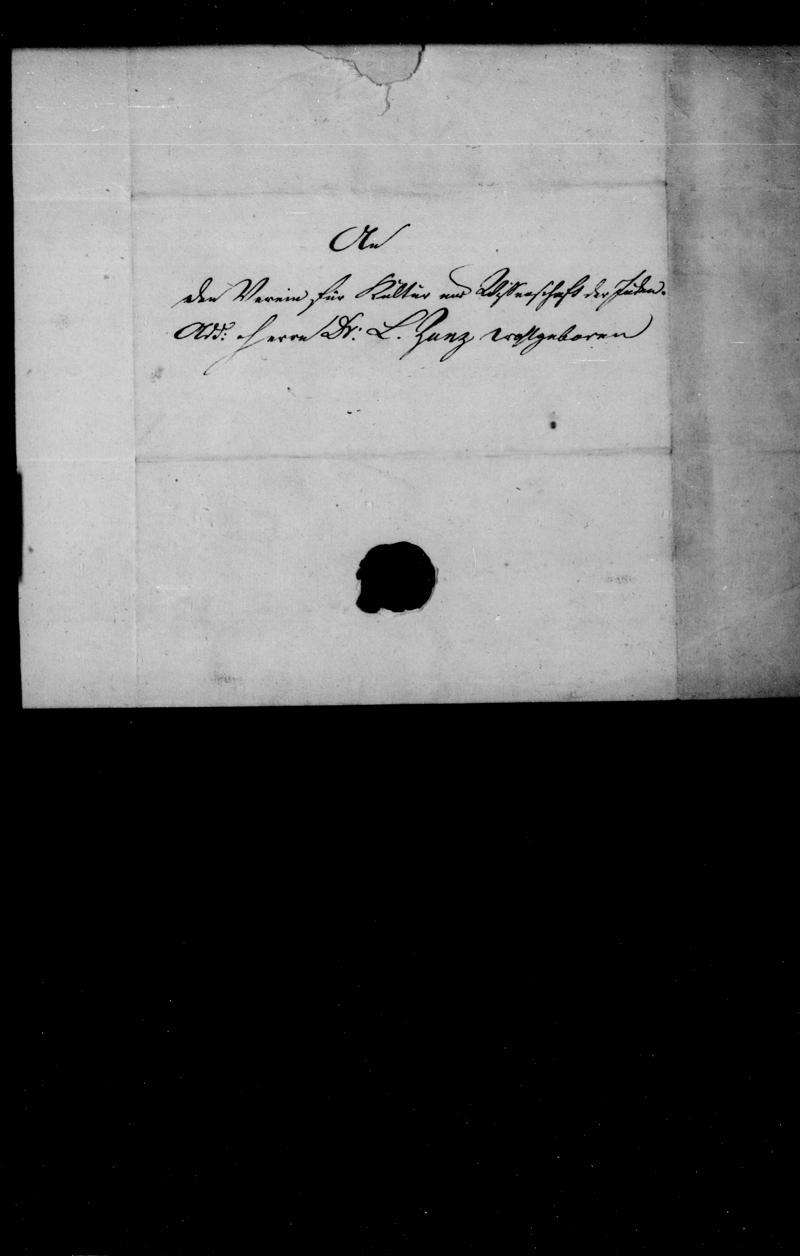 An
den Verein für Kultur und Wissenschaft der Juden.
Add: Herrn Dr. L. Zunz Wohlgeboren